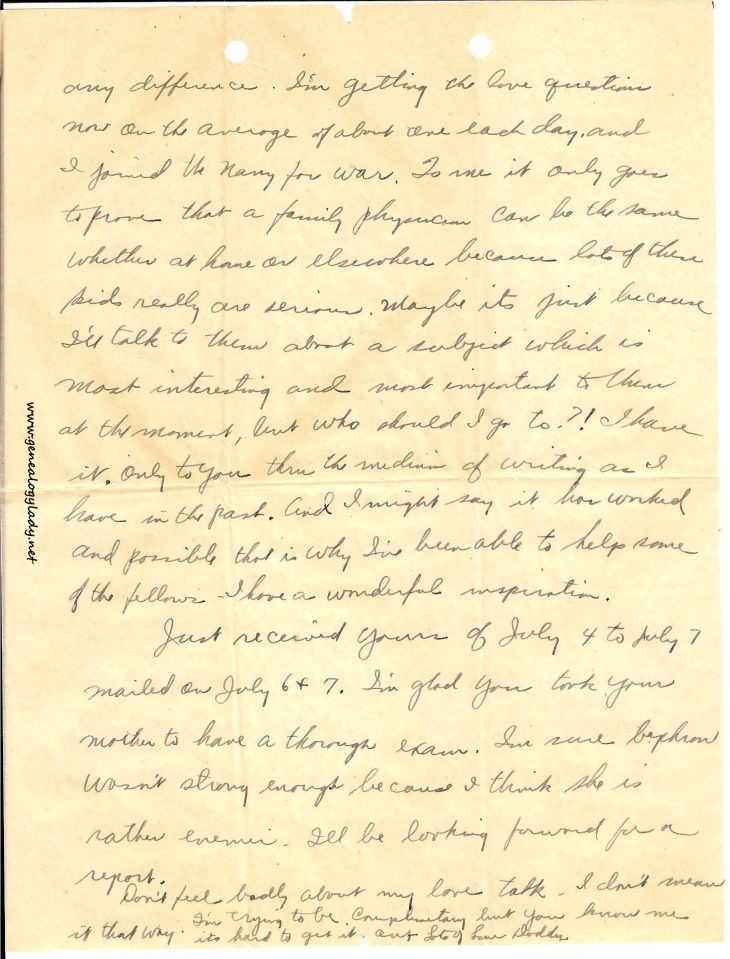 any difference. I'm getting the love question
now on the average of about one each day, and
I joined the Navy for war. To me it only goes
to prove that a family physician can be the same
whether at home or elsewhere because lots of these
kids really are serious. Maybe its just because
I'll talk to them about a subject which is
most interesting and most important to them
at the moment, but who should I go to.?! I have
it. Only to you thru the medium of writing as I
have in the past. And I might say it has worked
and possible that is why I've been able to help some
of the fellows - I have a wonderful inspiration.
Just received yours of July 4 to July 7
mailed on July 6 & 7. I'm glad you took your
mother to have a thorough exam. I'm sure bephron
wasn't strong enough because I think she is
rather enemic. I'll be looking forward for a
report.
Don't feel badly about my love talk - I don't mean
it that way. I'm trying to be complimentary but you know me
its hard to get it out Lots of Love Daddy
www.genealogylady.net